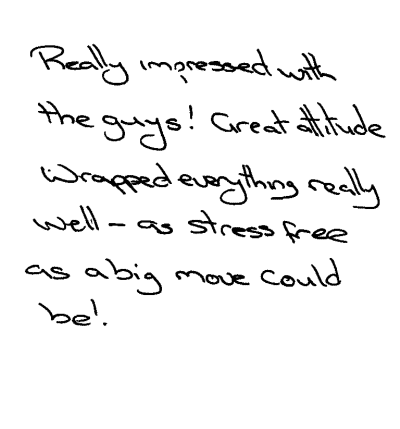 Really impressed with
the guys! Great attitude
Wrapped everything really
well - as stress free
as a big move could
be!.